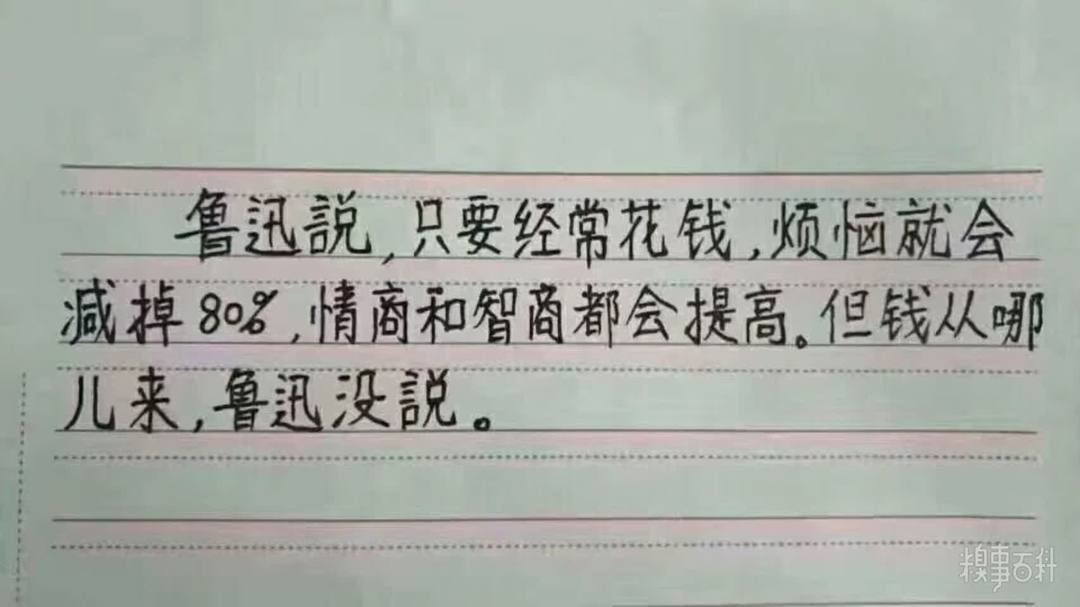 鲁迅説,只要经常花钱,烦恼就会
减掉80%,情商和智商都会提高。但钱从哪
儿来,鲁迅没説。
糗事百科